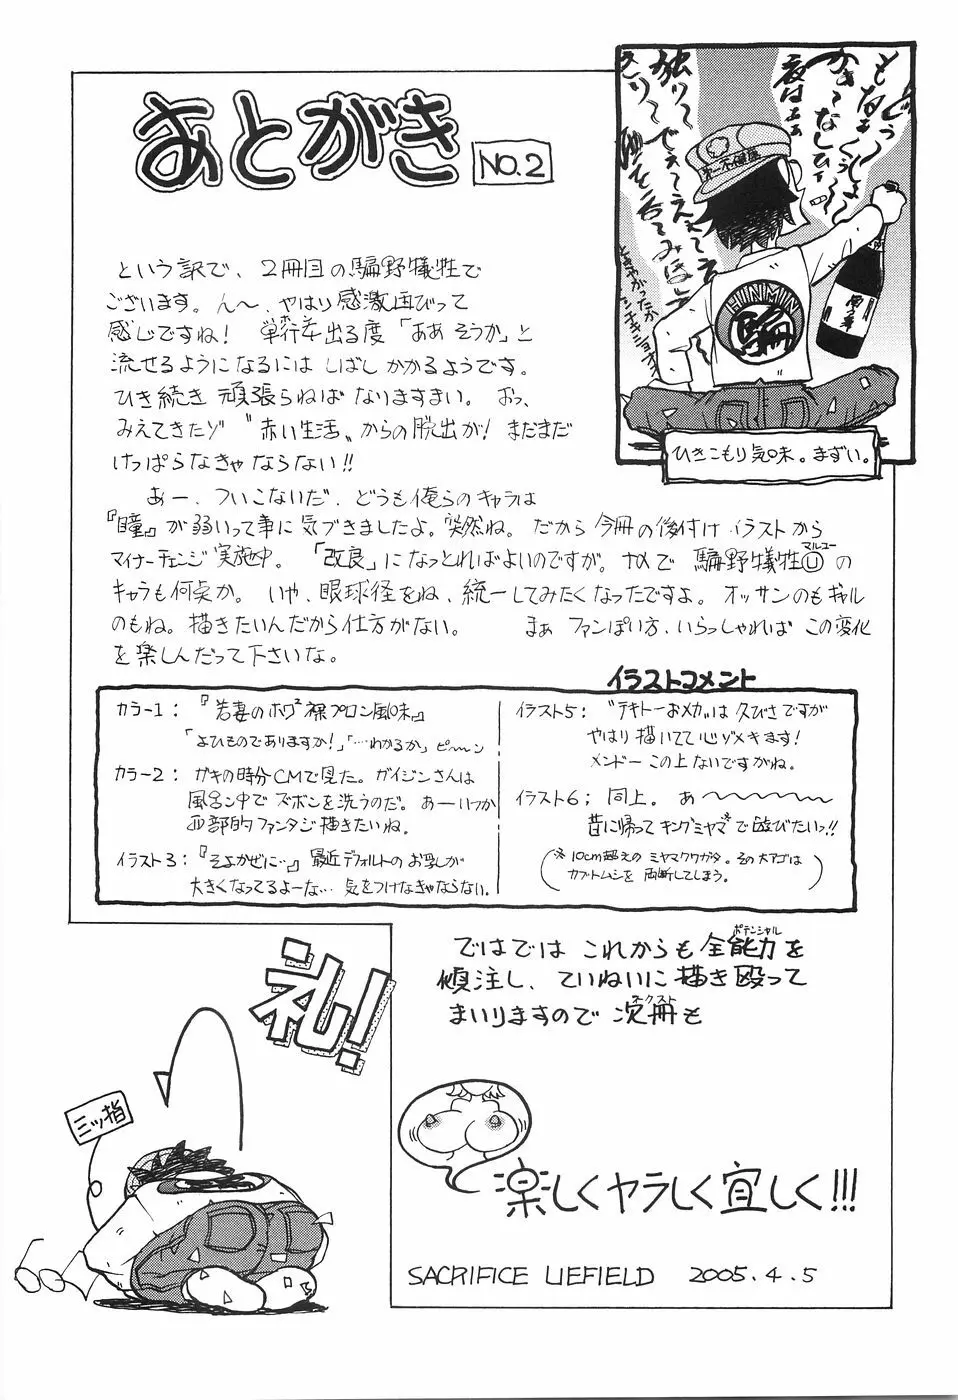 あとがき NO.2
という訳で、2冊目の騙野犠牲で
ございます。ん〜、やはり感激函びって
感じですね! 単行本出る度「ああそうか」と
流せるようになるには しばしかかるようです。
ひき続き 頑張らねば なりますまい。おっ、
みえてきたゾ〝赤い生活〟からの脱出が! まだまだ
けっぱらなきゃならない!!
あー、ついこないだ、どうも俺らのキャラは
『瞳』が弱いって事に気づきましたよ。突然ね。だから今冊の後付けイラストから
マイナーチェンジ実施中。「改良」になっとればよいのですが。なので 騙野犠牲Ⓤの
キャラも何点か。いや、眼球径をね、統一してみたくなったですよ。オッサンのもギャル
のもね。描きたいんだから仕方がない。 まぁ ファンぽい方、いらっしゃれば この変化
を楽しんだって下さいな。
HINMIN
騙
ひきこもり気味。まずい。
イラストコメント
カラー1:『若妻のホワ² 裸プロン風味』
「よひものでありますか!」「…わかるか」ピーン
カラー2: ガキの時分CMで見た。ガイジンさんは
風呂ン中でズボンを洗うのだ。あーいつか
西部的ファンタジ描きたいね。
イラスト3:『そよかぜに…』最近デフォルトのお乳が
大きくなってるよーな… 気をつけなきゃならない。
イラスト5: 〝テキトーおメカ〟は久びさですが
やはり描いてて心ゾメキます!
メンドー この上ないですがね。
イラスト6; 同上。あ〜〜〜〜〜
昔に帰ってキングミヤマ※で遊びたいっ!!
(※10cm超えのミヤマクワガタ。その大アゴは
カブトムシを両断してしまう。)
ではでは これからも 全能力を
傾注し、ていねいに描き殴って
まいりますので 次冊も
礼!
三ッ指
楽しくヤラしく宜しく!!!
SACRIFICE LIEFIELD 2005.4.5